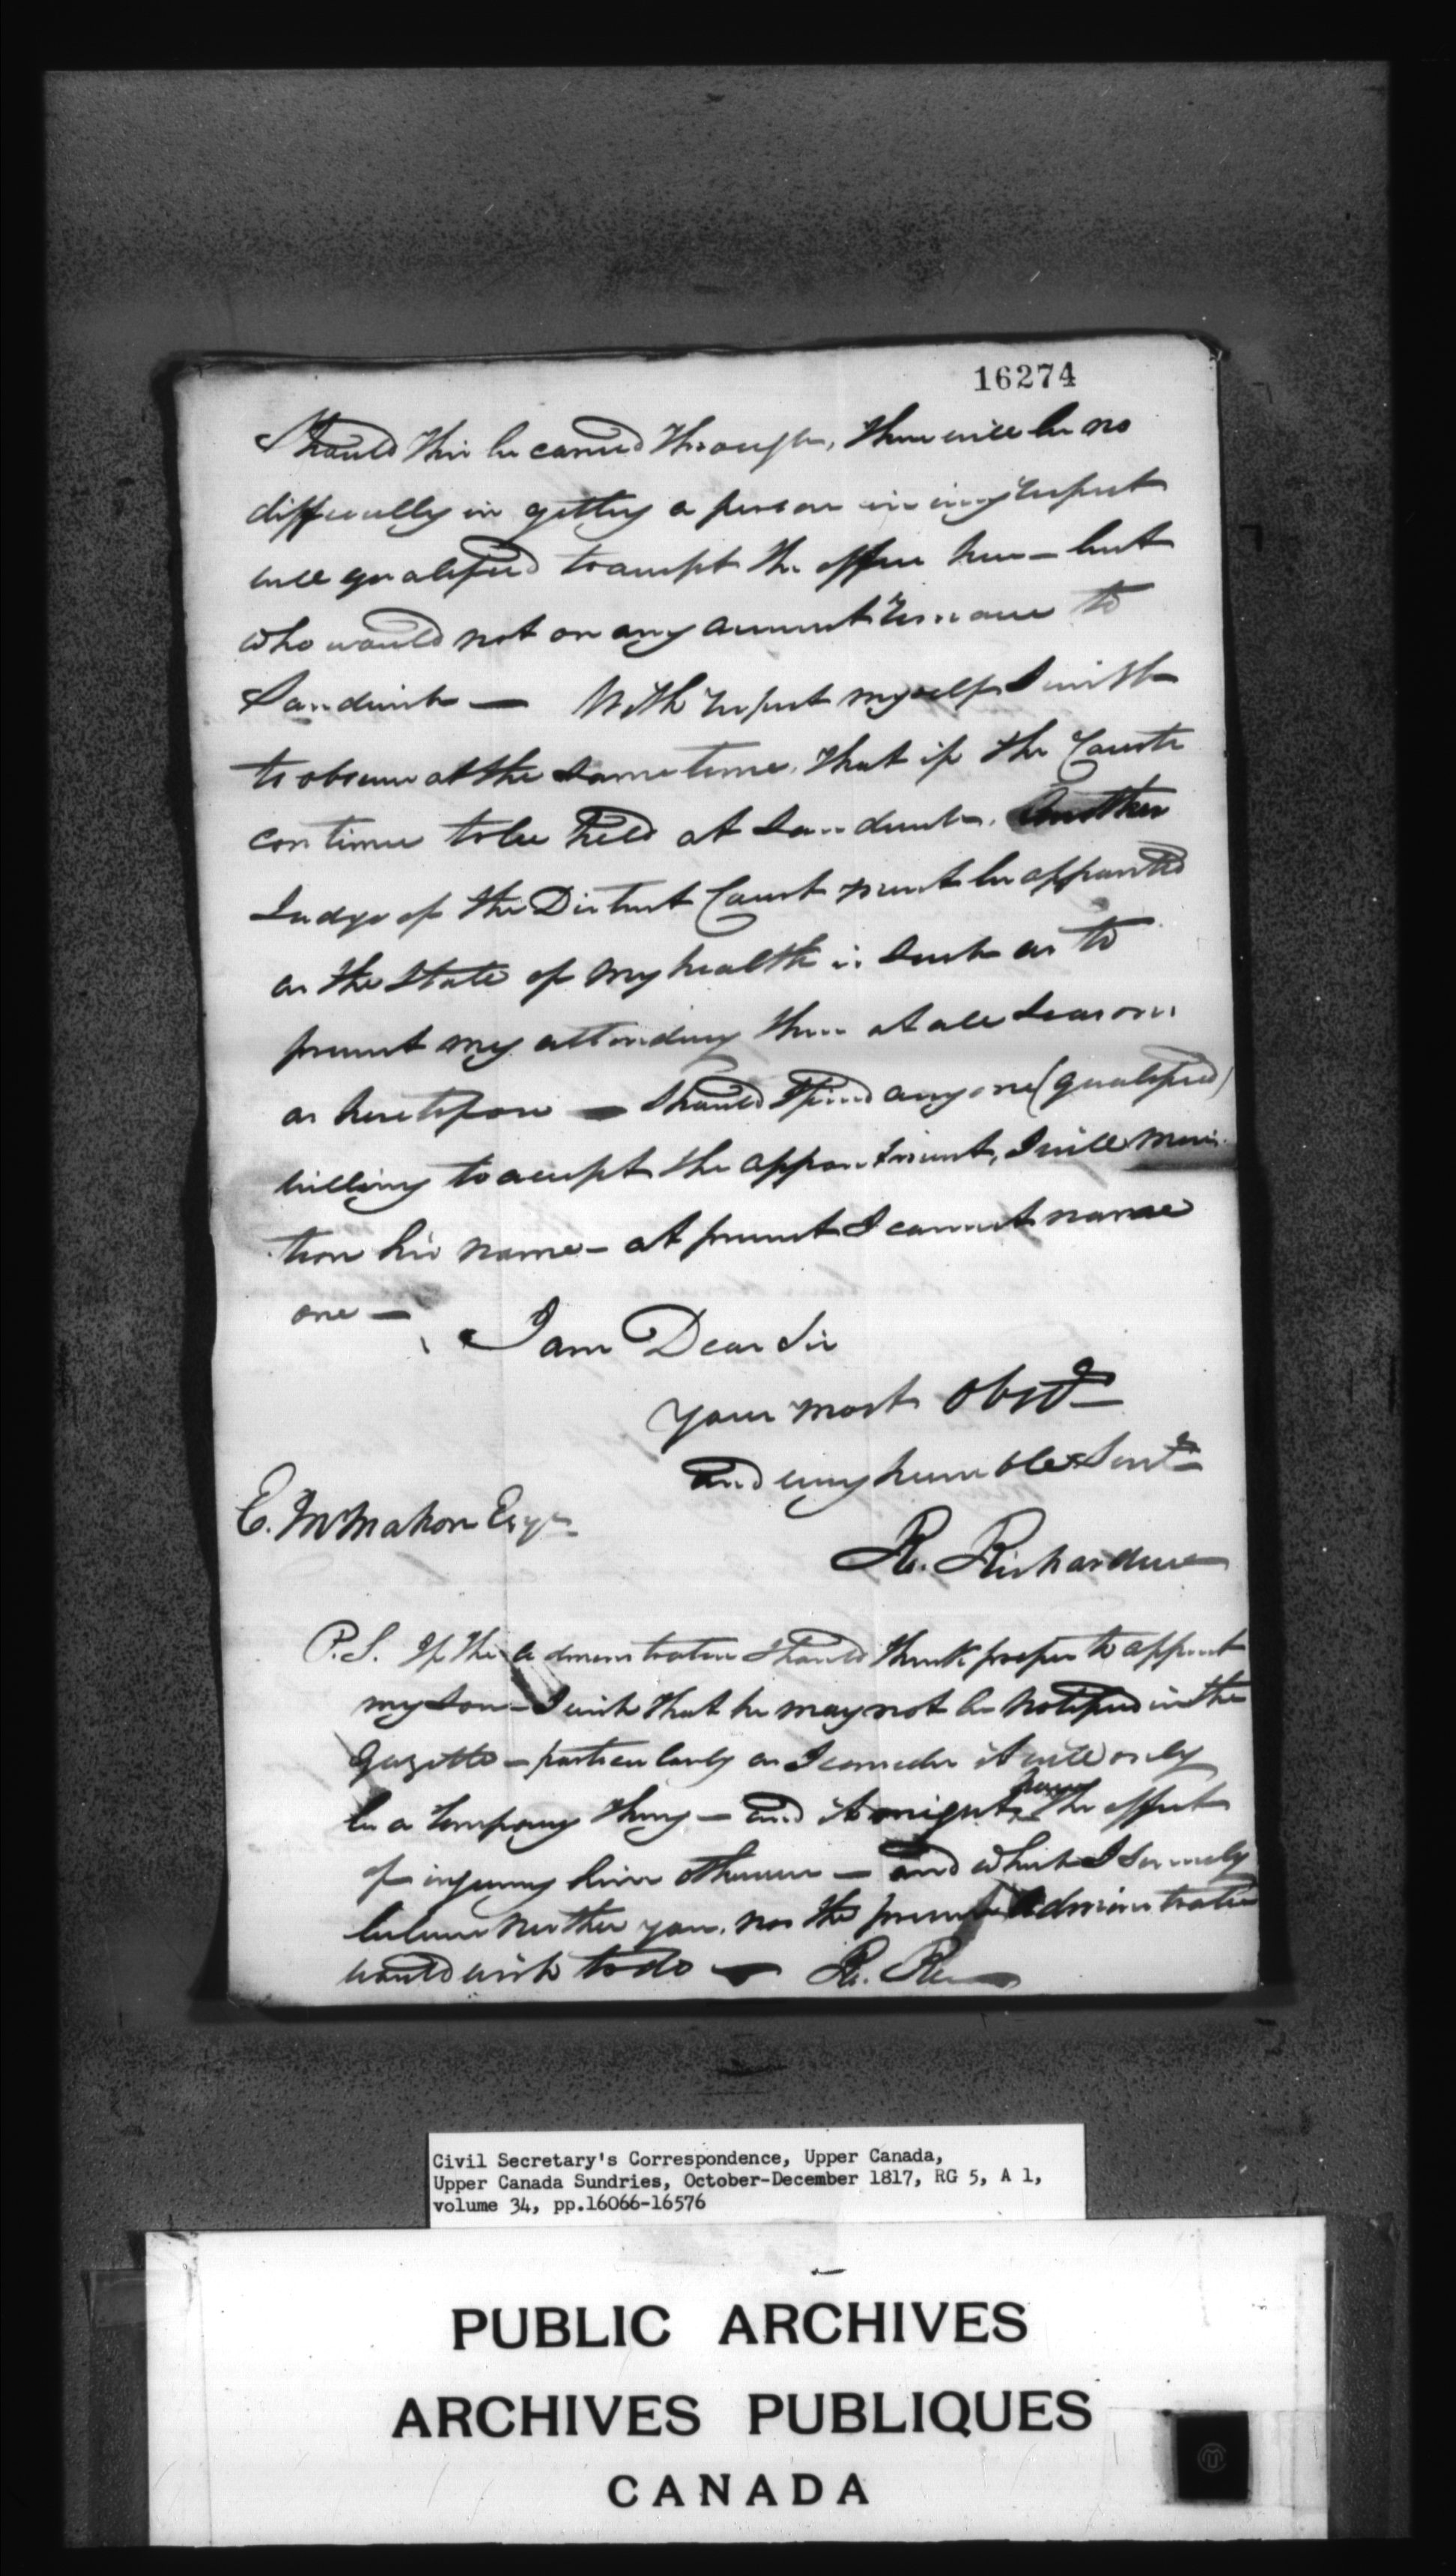 16274
Should this be carried through, there will be no
difficulty in getting a person in every respect
well qualified to accept the office here — but
who would not on any account remove to
Sandwich — With respect myself I wish
to observe at the same time, that if the Courts
continue to be held at Sandwich. Another
Judge of the District Court must be appointed
as the state of my health is such as to
prevent my attending there at all seasons
as heretofore — Should I find any one (qualified)
willing to accept the appointment, I will men
tion his name — at present I cannot name
one —
I am Dear Sir
Your most Obedt
and very humble Servt
C. McMahon Esqr
R. Richardson
P.S. If the administrator should think proper to appoint
my son — I wish that he may not be notified in the
Gazette — particularly as I consider it will only
be a temporary thing — and it might have the effect
of injuring him otherwise — and which I sincerely
believe neither you, nor the present Administrator
would wish to do — R. R
Civil Secretary's Correspondence, Upper Canada,
Upper Canada Sundries, October-December 1817, RG 5, A 1,
volume 34, pp.16066-16576
PUBLIC ARCHIVES
ARCHIVES PUBLIQUES
CANADA